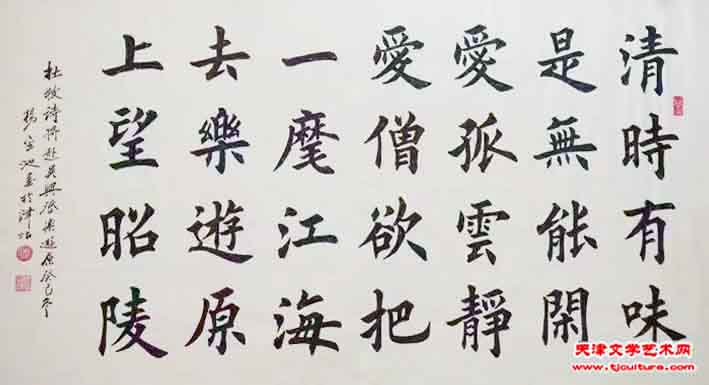 清時有味
是無能閑
愛孤雲靜
愛僧欲把
一麾江海
去樂遊原
上望昭陵
杜牧诗將赴吴興登樂遊原癸巳冬
楊宝池書於津沽
天津文学艺术网
http://www.tjculture.com/